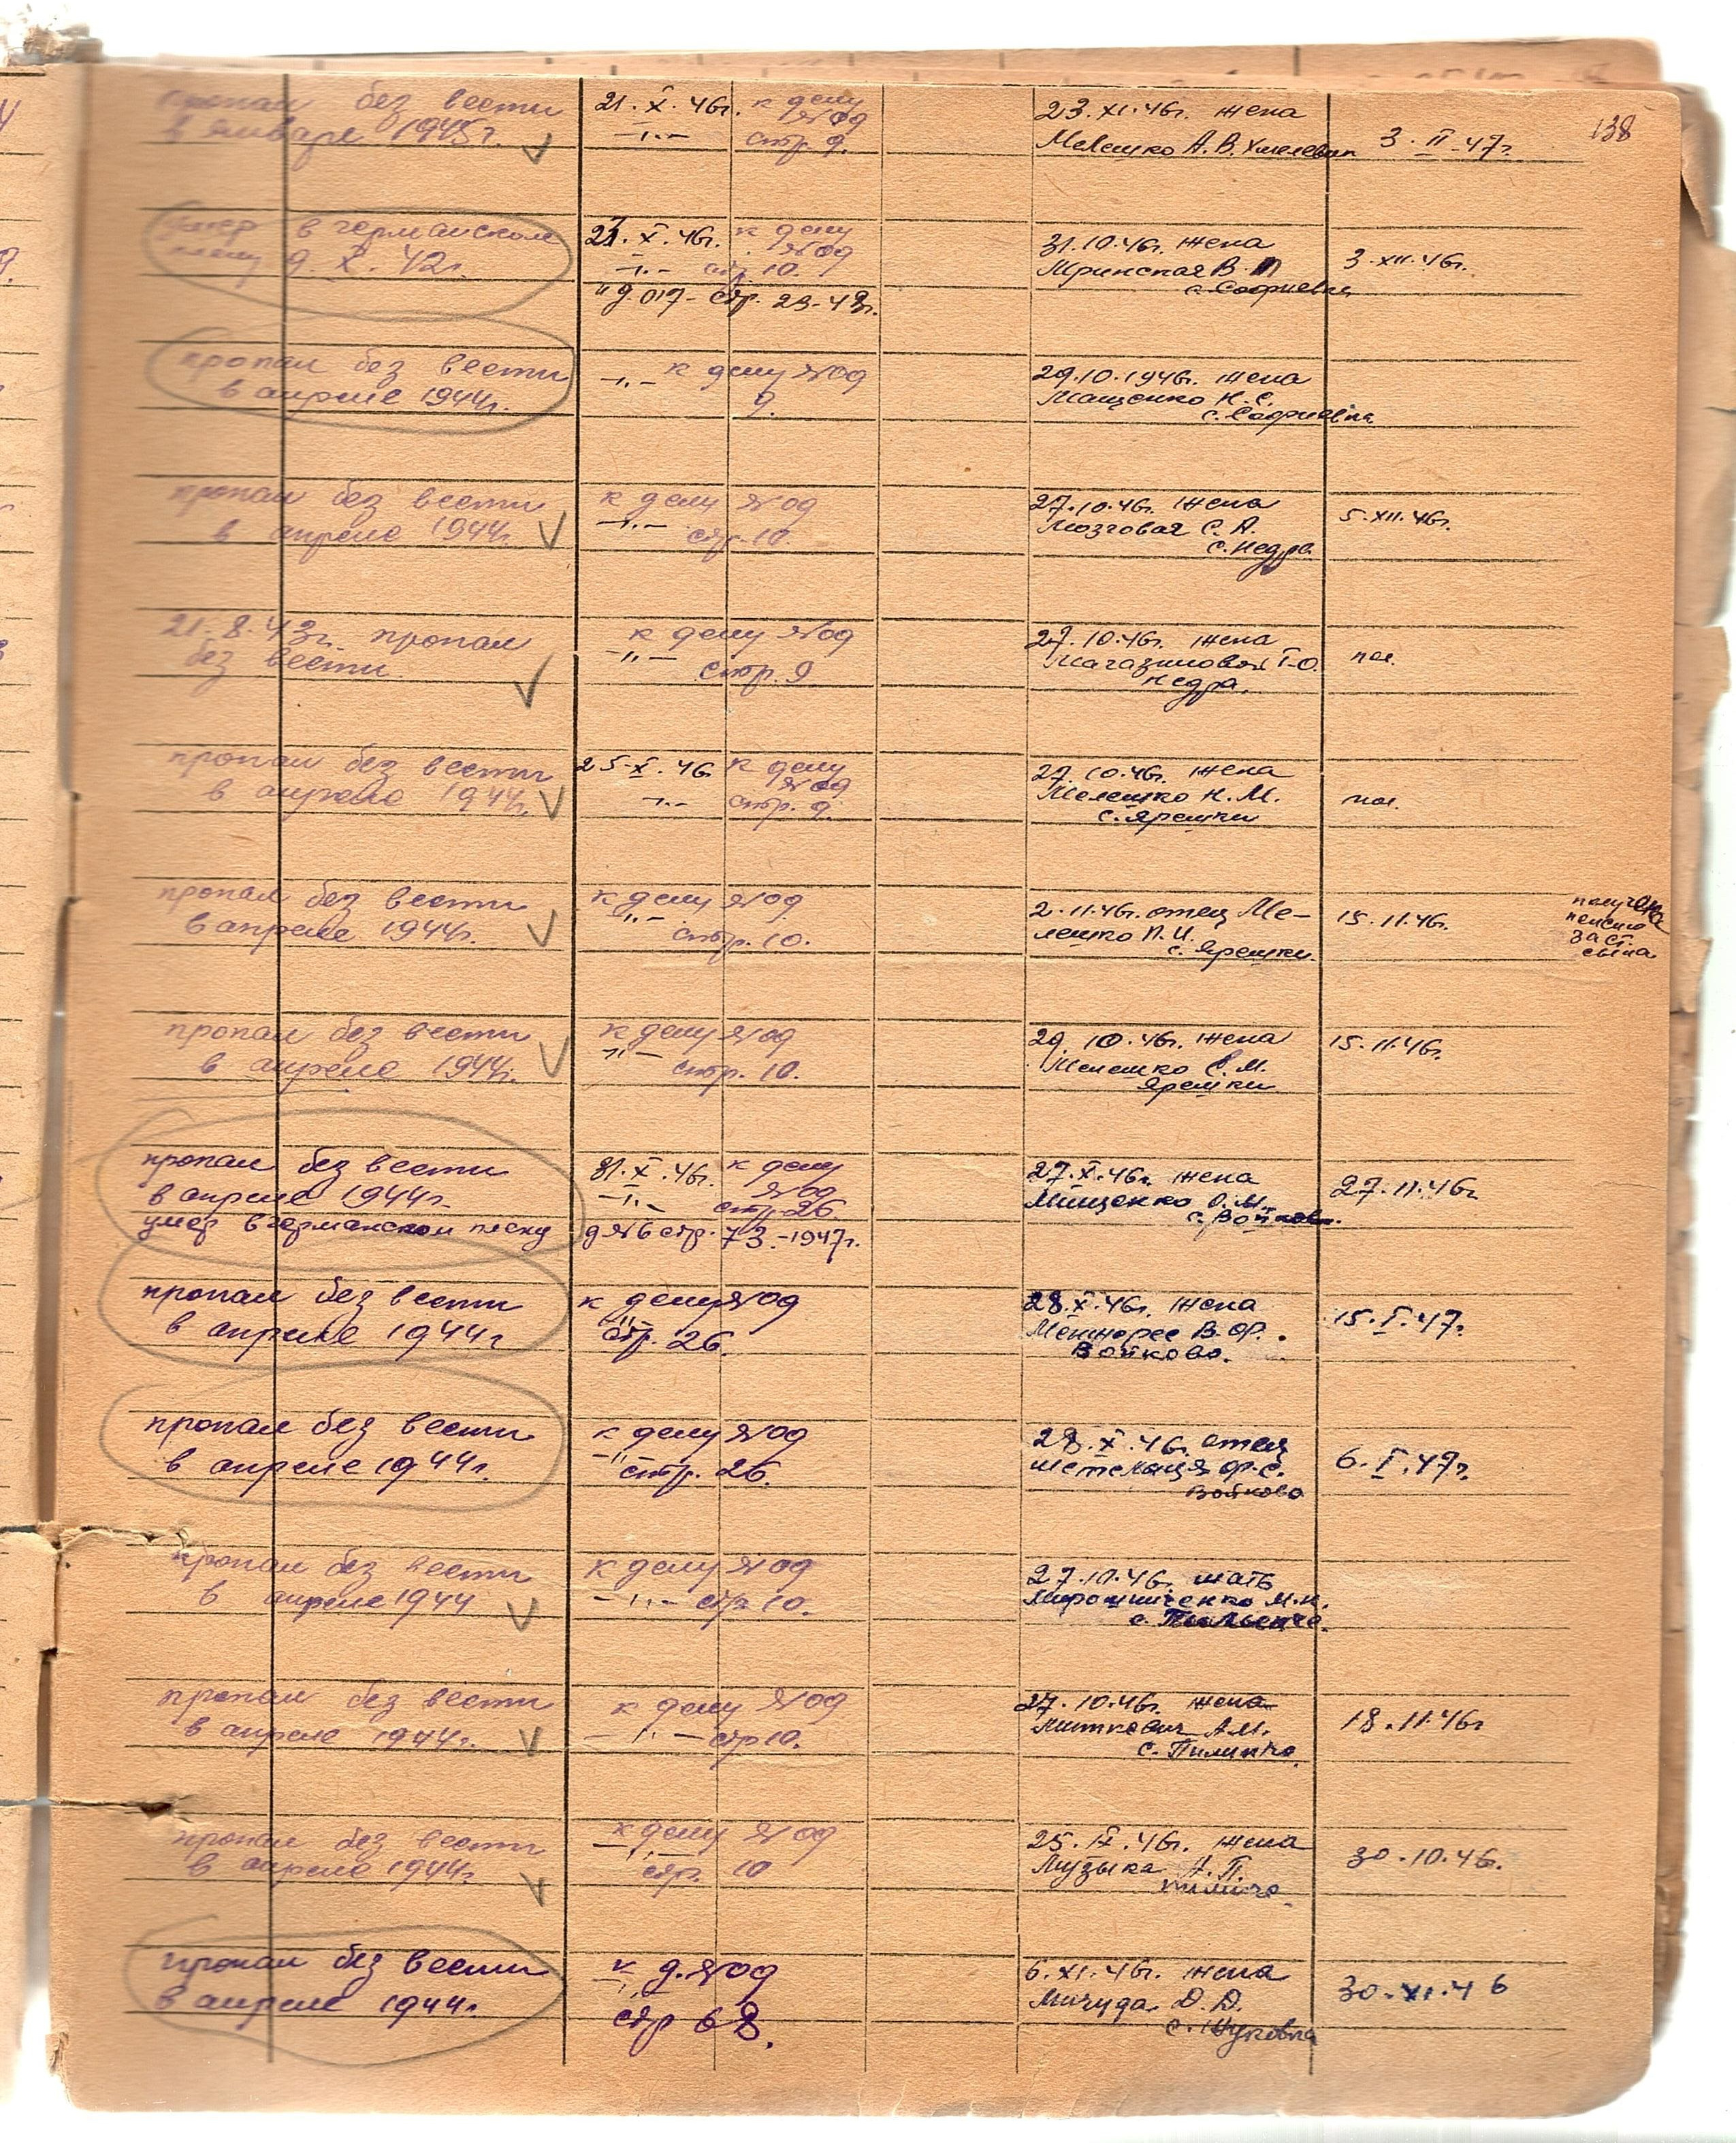 138
пропал без вести
в январе 1945г.
21.X.46г. к делу
№09
—"— стр. 9.
23.XI.46г. жена
Мелешко А.В.
3.II-47г.
умер в германском
плену 9.X.42г.
21.X.46г. к делу
№09
—"— стр. 10.
стр. 23-48г.
31.10.46г. жена
Мринская В.
с. Софиевка
3.XII.46г.
пропал без вести
в апреле 1944г.
—"— к делу №09
9.
29.10.1946г. жена
Мащенко Н.С.
с. Софиевка
пропал без вести
в апреле 1944г.
к делу №09
—"— стр. 10.
27.10.46г. жена
Мозговая С.А.
с. Недра
5.XII.46г.
21.8.43г. пропал
без вести
к делу №09
—"— стр. 9
27.10.46г. жена
Магазиновая Г.О.
Недра.
пол.
пропал без вести
в апреле 1944г.
25.X.46 к делу
№09
—"— стр. 9.
27.10.46г. жена
Мелешко Н.М.
с. Ярешки
пол.
пропал без вести
в апреле 1944г.
к делу №09
—"— стр. 10.
2.11.46г. отец Ме-
лешко П.И.
с. Ярешки.
15.11.46г.
получена
пенсию
за ст.
сына.
пропал без вести
в апреле 1944г.
к делу №09
—"— стр. 10.
29.10.46г. жена
Мелешко Е.М.
Ярешки
15.11.46г.
пропал без вести
в апреле 1944г.
умер в германском плену
31.X.46г. к делу
№09
—"— стр. 26
д №6 стр. 73.-1947г.
27.X.46г. жена
Мищенко О.М.
с. Войково.
27.11.46г
пропал без вести
в апреле 1944г
к делу №09
—"— стр. 26.
28.X.46г. жена
В.Ф.
Войково.
15.I.47г.
пропал без вести
в апреле 1944г.
к делу №09
—"— стр. 26.
28.X.46г. отец
Ф.С.
Войково
6.I.47г.
пропал без вести
в апреле 1944
к делу №09
—"— стр 10.
27.10.46г. мать
Мирошниченко М.Н.
с.
пропал без вести
в апреле 1944г.
к делу №09
—"— стр 10.
27.10.46г. жена
Миткевич А.М.
с.
18.11.46г
пропал без вести
в апреле 1944г
к делу №09
—"— стр. 10
25.IX.46г. жена
Музыка А.П.
30.10.46.
пропал без вести
в апреле 1944г.
к д. №09
—"— стр 68.
6.XI.46г. жена
Мигуда Д.Д.
с.
30.XI.46